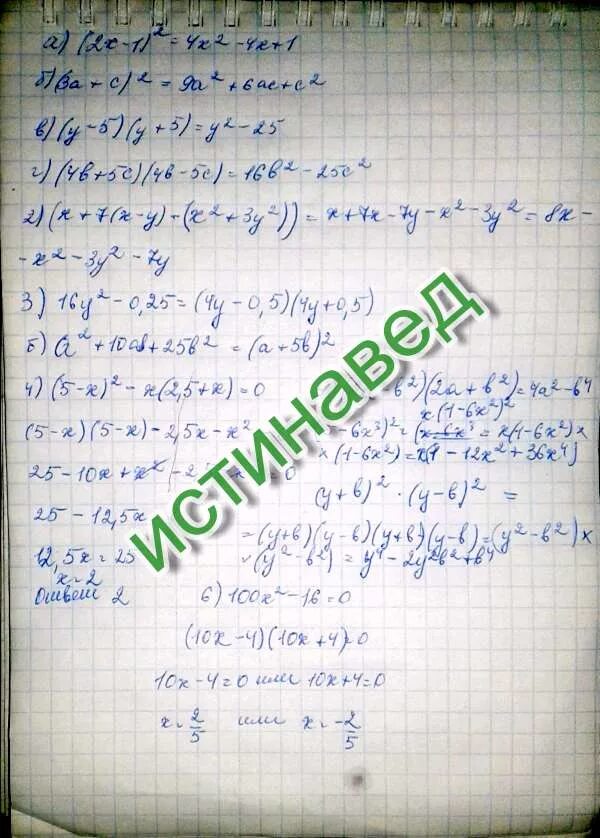 а) (2x-1)² = 4x² - 4x + 1
б) (3a + c)² = 9a² + 6ac + c²
в) (y - 5)(y + 5) = y² - 25
г) (4b + 5c)(4b - 5c) = 16b² - 25c²
2) (x + 7(x - y) - (x² + 3y²)) = x + 7x - 7y - x² - 3y² = 8x -
- x² - 3y² - 7y
3) 16y² - 0,25 = (4y - 0,5)(4y + 0,5)
б) a² + 10ab + 25b² = (a + 5b)²
4) (5-x)² - x(2,5+x) = 0
(5-x)(5-x) - 2,5x - x²
25 - 10x + x²
= 0
25 - 12,5x
12,5x = 25
x = 2
Ответ 2
b²)(2a + b²) = 4a² - b⁴
x(1-6x²)²
-6x³)² = (x-6x³ = x(1-6x²)x
x(1-6x²) = x(1 - 12x² + 36x⁴)
(y + b)² · (y - b)² =
= (y+b)(y-b)(y+b)(y-b) = (y² - b²) x
x (y² - b²) = y⁴ - 2y²b² + b⁴
6) 100x² - 16 = 0
(10x - 4)(10x + 4) = 0
10x - 4 = 0 или 10x + 4 = 0
x = 2/5 или x = -2/5
ИСТИНАВЕД